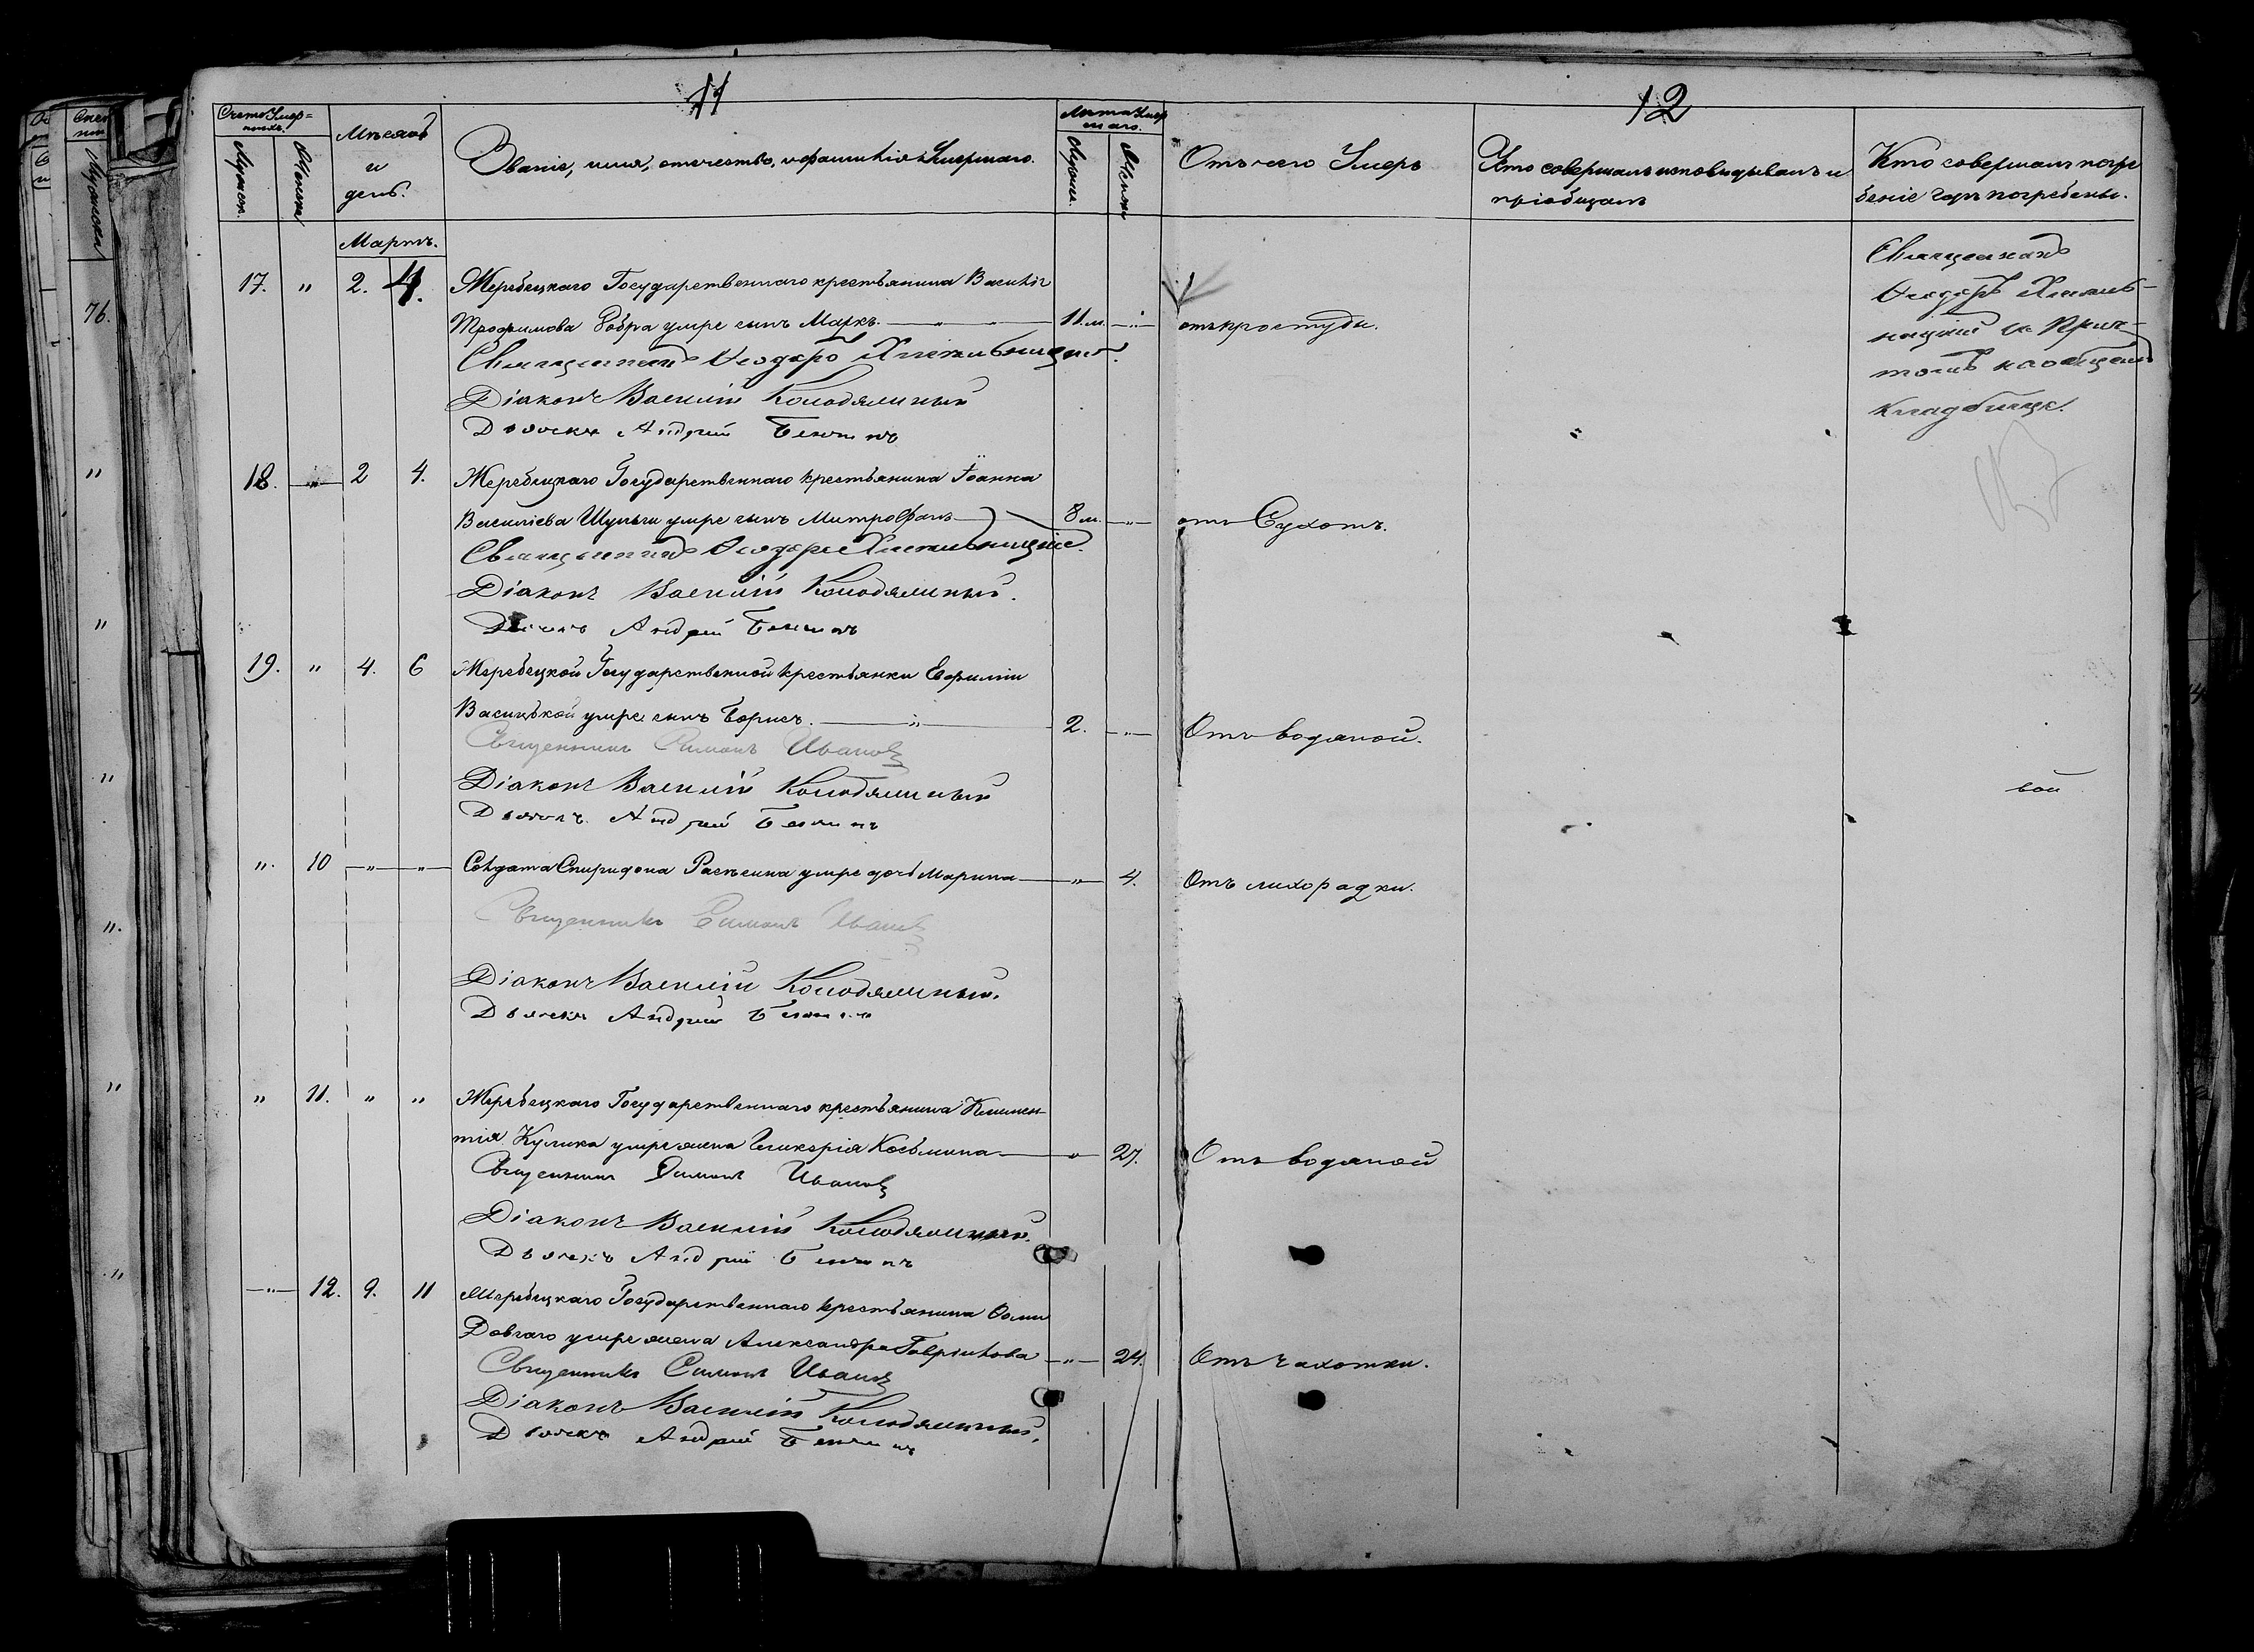 11
12
Счетъ Умер=
шихъ.
Мужеск.
Женск.
Мѣсяцъ
и
день.
Званіе, имя, отчество, и фамилія Умершаго.
Лѣта Умер
шаго.
Мужск.
Женск.
Отъ чего Умеръ
Кто совершалъ исповѣдывалъ и
пріобщалъ
Кто совершалъ погре
беніе и гдѣ погребены.
Мартъ.
17. " 2. 4. Жеребецкаго Государственнаго крестьянина Василія
Трофимова Бобра умре сынъ Маркъ. — " — 11.м. — " — отъ простуды.
Священникъ Ѳеодоръ Хмельницкій.
Діаконъ Василій Колодяжный
Дьячекъ Андрей
Священникъ
Ѳеодоръ Хмель-
ницкій съ Прич-
томъ на общемъ
кладбищѣ.
18. — " — 2 4. Жеребецкаго Государственнаго крестьянина Іоанна
Василіева Шульги умре сынъ Митрофанъ 8 м. — " — отъ Сухотъ.
Священникъ Ѳеодоръ Хмельницкій.
Діаконъ Василій Колодяжный.
Дьячекъ Андрей
19. " 4. 6 Жеребецкой Государственной крестьянки Евфиміи
умре сынъ Борисъ. — " — 2. — " — Отъ водяной.
Священникъ Симонъ Ивановъ
Діаконъ Василій Колодяжный
Дьячекъ Андрей
вой
". 10 — " — " — Солдата Спиридона умре дочь Марина — " — 4. Отъ лихорадки.
Священникъ Симонъ Ивановъ
Діаконъ Василій Колодяжный.
Дьячекъ Андрей
" 11. " " Жеребецкаго Государственнаго крестьянина Климен-
тія Кулика умре жена Гликерія Косьмина — " — 27. Отъ водяной
Священникъ Симонъ Ивановъ
Діаконъ Василій Колодяжный.
Дьячекъ Андрей
— " — 12. 9. 11 Жеребецкаго Государственнаго крестьянина Ѳомы
Довгаго умре жена Александра Гавріилова — " — 24. Отъ чахотки.
Священникъ Симонъ Ивановъ
Діаконъ Василій Колодяжный.
Дьячекъ Андрей
76.